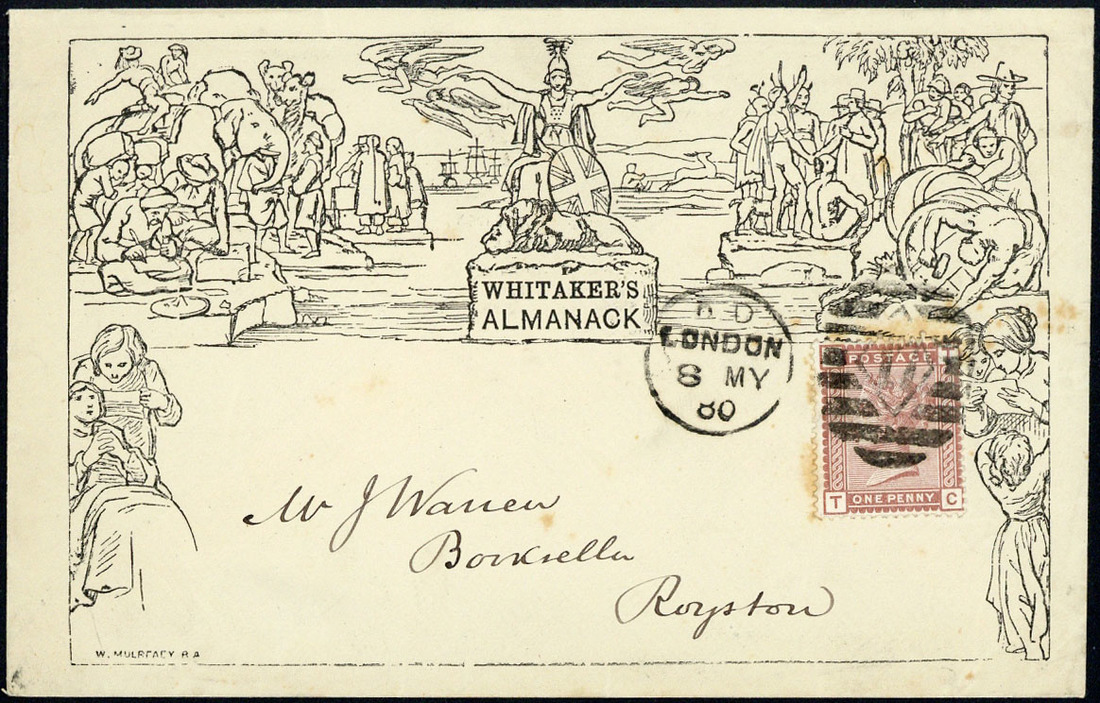 WHITAKER'S
ALMANACK
LONDON
8 MY
80
POSTAGE
ONE PENNY
T C
Mr J Warren
Bookseller
Royston
W. MULREADY R A